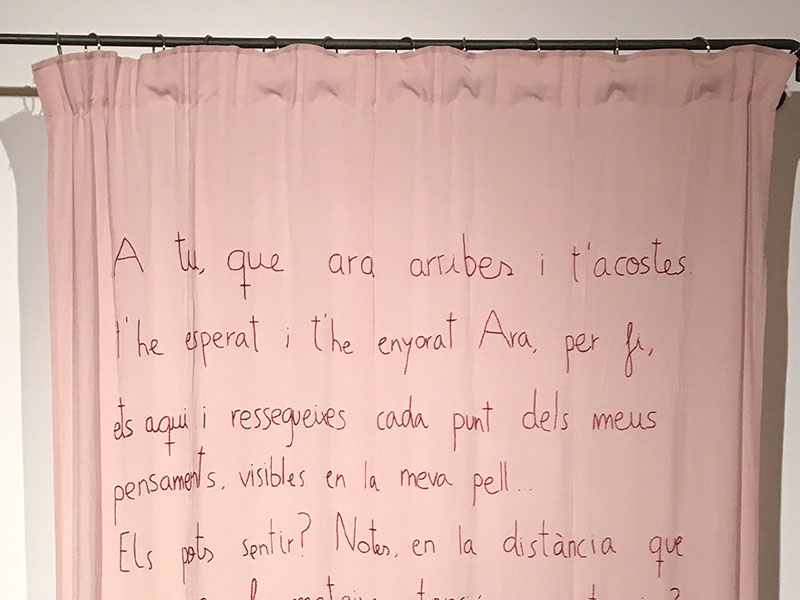 A tu, que ara arribes i t'acostes.
t'he esperat i t'he enyorat Ara, per fi,
ets aqui i ressegueixes cada punt dels meus
pensaments, visibles en la meva pell...
Els pots sentir? Notes, en la distància que
la mateixa